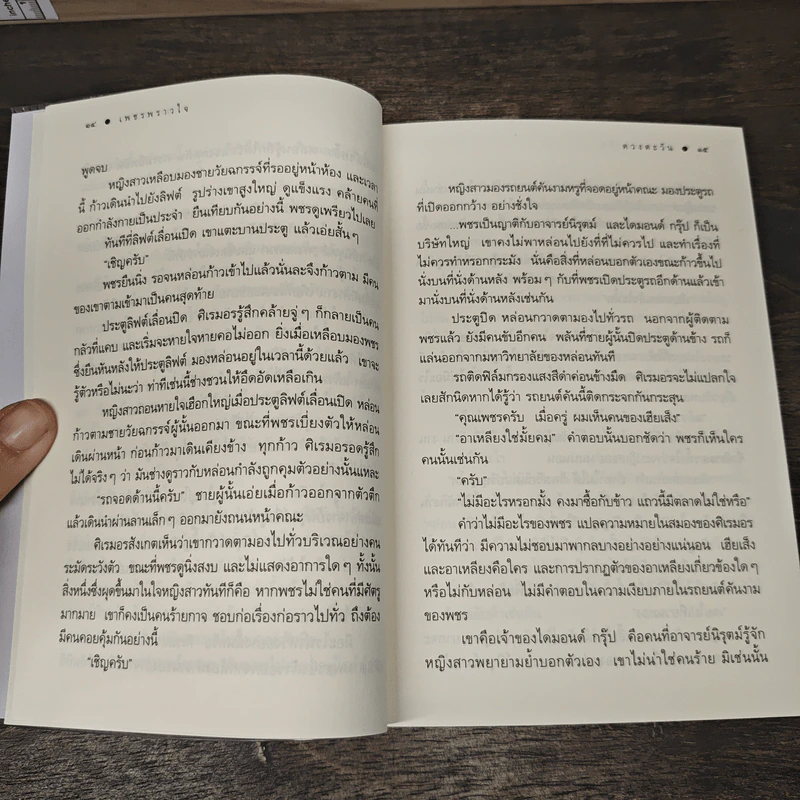 inche
๒๔ ● เพชรพราวใจ
พูดจบ
หญิงสาวเหลือบมองชายวัยฉกรรจ์ที่รออยู่หน้าห้อง และเวลา
นี้ ก้าวเดินนำไปยังลิฟต์ รูปร่างเขาสูงใหญ่ ดูแข็งแรง คล้ายคนที่
ออกกำลังกายเป็นประจำ ยืนเทียบกันอย่างนี้ พชรดูเพรียวไปเลย
ทันทีที่ลิฟต์เลื่อนเปิด เขาแตะบานประตู แล้วเอ่ยสั้นๆ
“เชิญครับ”
พชรยืนนิ่ง รอจนหล่อนก้าวเข้าไปแล้วนั่นละจึงก้าวตาม มีคน
ของเขาตามเข้ามาเป็นคนสุดท้าย
ประตูลิฟต์เลื่อนปิด ศิเรมอรรู้สึกคล้ายจู่ๆ ก็กลายเป็นคน
กลัวที่แคบ และเริ่มจะหายใจหายคอไม่ออก ยิ่งเมื่อเหลือบมองพชร
ซึ่งยืนหันหลังให้ประตูลิฟต์ มองหล่อนอยู่ในเวลานี้ด้วยแล้ว เขาจะ
รู้ตัวหรือไม่นะว่า ท่าทีเช่นนี้ช่างชวนให้อึดอัดเหลือเกิน
หญิงสาวถอนหายใจเฮือกใหญ่เมื่อประตูลิฟต์เลื่อนเปิด หล่อน
ก้าวตามชายวัยฉกรรจ์ผู้นั้นออกมา ขณะที่พชรเบี่ยงตัวให้หล่อน
เดินผ่านหน้า ก่อนก้าวมาเดินเคียงข้าง ทุกก้าว ศิเรมอรอดรู้สึก
ไม่ได้จริงๆ ว่า มันช่างดูราวกับหล่อนกำลังถูกคุมตัวอย่างนั้นแหละ
“รถจอดด้านนี้ครับ” ชายผู้นั้นเอ่ยเมื่อก้าวออกจากตัวตึก
แล้วเดินนำผ่านลานเล็กๆ ออกมายังถนนหน้าคณะ
ศิเรมอรสังเกตเห็นว่าเขากวาดตามองไปทั่วบริเวณอย่างคน
ระมัดระวังตัว ขณะที่พชรดูนิ่งสงบ และไม่แสดงอาการใดๆ ทั้งนั้น
สิ่งหนึ่งซึ่งผุดขึ้นมาในใจหญิงสาวทันทีก็คือ หากพชรไม่ใช่คนที่มีศัตรู
มากมาย เขาก็คงเป็นคนร้ายกาจ ชอบก่อเรื่องก่อราวไปทั่ว ถึงต้อง
มีคนคอยคุ้มกันอย่างนี้
“เชิญครับ”
ดวงตะวัน ● ๒๕
หญิงสาวมองรถยนต์คันงามหรูที่จอดอยู่หน้าคณะ มองประตูรถ
ที่เปิดออกกว้าง อย่างชั่งใจ
...พชรเป็นญาติกับอาจารย์นิรุตม์ และไดมอนด์ กรุ๊ป ก็เป็น
บริษัทใหญ่ เขาคงไม่พาหล่อนไปยังที่ที่ไม่ควรไป และทำเรื่องที่
ไม่ควรทำหรอกกระมัง นั่นคือสิ่งที่หล่อนบอกตัวเองขณะก้าวขึ้นไป
นั่งบนที่นั่งด้านหลัง พร้อมๆ กับที่พชรเปิดประตูรถอีกด้านแล้วเข้า
มานั่งบนที่นั่งด้านหลังเช่นกัน
ประตูปิด หล่อนกวาดตามองไปทั่วรถ นอกจากผู้ติดตาม
พชรแล้ว ยังมีคนขับอีกคน พลันที่ชายผู้นั้นปิดประตูด้านข้าง รถก็
แล่นออกจากมหาวิทยาลัยของหล่อนทันที
รถติดฟิล์มกรองแสงสีดำค่อนข้างมืด ศิเรมอรจะไม่แปลกใจ
เลยสักนิดหากได้รู้ว่า รถยนต์คันนี้ติดกระจกกันกระสุน
“คุณเพชรครับ เมื่อครู่ ผมเห็นคนของเฮียเส็ง”
“อาเหลียงใช่มั้ยคม” คำตอบนั้นบอกชัดว่า พชรก็เห็นใคร
คนนั้นเช่นกัน
“ครับ”
“ไม่มีอะไรหรอกมั้ง คงมาซื้อกับข้าว แถวนี้มีตลาดไม่ใช่หรือ”
คำว่าไม่มีอะไรของพชร แปลความหมายในสมองของศิเรมอร
ได้ทันทีว่า มีความไม่ชอบมาพากลบางอย่างอย่างแน่นอน เฮียเส็ง
และอาเหลียงคือใคร และการปรากฏตัวของอาเหลียงเกี่ยวข้องใดๆ
หรือไม่กับหล่อน ไม่มีคำตอบในความเงียบภายในรถยนต์คันงาม
ของพชร
เขาคือเจ้าของไดมอนด์ กรุ๊ป คือคนที่อาจารย์นิรุตม์รู้จัก
หญิงสาวพยายามย้ำบอกตัวเอง เขาไม่น่าใช่คนร้าย มิเช่นนั้น